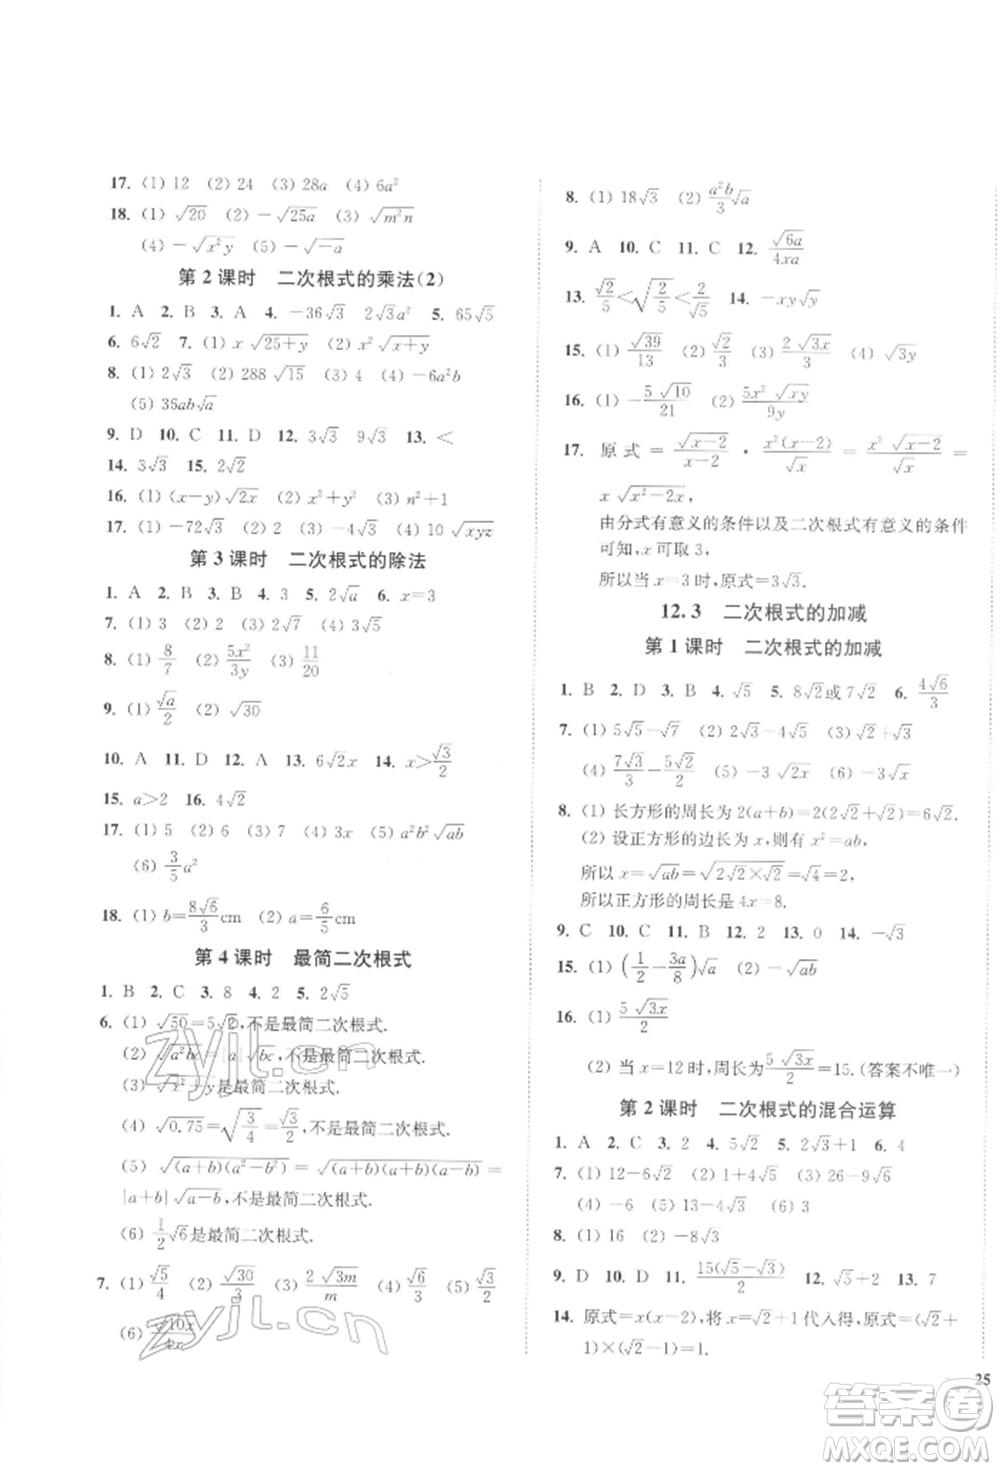 17. (1) 12 (2) 24 (3) 28a (4) 6a²
18. (1) √20 (2) -√25a (3) √m²n
(4) -√x²y (5) -√-a
第 2 课时 二次根式的乘法(2)
1. A 2. B 3. A 4. -36√3 2√3a² 5. 65√5
6. 6√2 7. (1) x√25+y (2) x²√x+y
8. (1) 2√3 (2) 288√15 (3) 4 (4) -6a²b
(5) 36ab√a
9. D 10. C 11. D 12. 3√3 9√3 13. <
14. 3√3 15. 2√2
16. (1) (x-y)√2x (2) x²+y² (3) n²+1
17. (1) -72√3 (2) 6 (3) -4√3 (4) 10√xyz
第 3 课时 二次根式的除法
1. A 2. A 3. B 4. 3 5. 2√a 6. x=3
7. (1) 3 (2) 2 (3) 2√7 (4) 3√5
8. (1) 8/7 (2) 5x²/3y (3) 11/20
9. (1) √a/2 (2) √30
10. A 11. D 12. D 13. 6√2x 14. x>√3/2
15. a>2 16. 4√2
17. (1) 5 (2) 6 (3) 7 (4) 3x (5) a²b²√ab
(6) 3/5a²
18. (1) b=8√6/3cm (2) a=6/5cm
第 4 课时 最简二次根式
1. B 2. C 3. 8 4. 2 5. 2√5
6. (1) √50=5√2,不是最简二次根式.
(2) √a²bc=|a|√bc,不是最简二次根式.
(3) √x²+y是最简二次根式.
(4) √0.75=√3/4=√3/2,不是最简二次根式.
(5) √(a+b)(a²-b²)=√(a+b)(a+b)(a-b)=
|a+b|√a-b,不是最简二次根式.
(6) 1/2√6是最简二次根式.
7. (1) √5/4 (2) √30/3 (3) 2√3m/m (4) √6/3 (5) √2/2
(6) √10x/4x
8. (1) 18√3 (2) a²b/3√a
9. A 10. C 11. C 12. √6a/4xa
13. √2/5<√2/5<2/√5 14. -xy√y
15. (1) √39/13 (2) √2/3 (3) 2√3x/3 (4) √3y
16. (1) -5√10/21 (2) 5x²√xy/9y
17. 原式=√x-2/x-2·x²(x-2)/√x=x²√x-2/√x=
x√x²-2x.
由分式有意义的条件以及二次根式有意义的条件
可知,x可取 3,
所以当 x=3 时,原式=3√3.
12.3 二次根式的加减
第 1 课时 二次根式的加减
1. B 2. D 3. B 4. √5 5. 8√2或7√2 6. 4√6/3
7. (1) 5√5-√7 (2) 2√3-4√5 (3) √2
(4) 7√3/3-12√2 (5) -3√2x (6) -√a
8. (1) 长方形的周长为 2(a+b)=2(2√2+√2)=6√2.
(2) 设正方形的边长为 x,则有 x²=ab,
所以 x=√ab=√2√2×√2=√4=2,
所以正方形的周长是 4x=8.
9. C 10. C 11. D 12. 2 13. 0 14. -√3
15. (1) (1/2-3a/8)√a (2) -√ab
16. (1) 5√3x/2
(2) 当 x=12 时,周长为5√3x/2=15.(答案不唯一)
第 2 课时 二次根式的混合运算
1. A 2. C 3. 2 4. 5√2 5. 2√3+1 6. 4
7. (1) 12-6√2 (2) 1+4√5 (3) 26-9√3
(4) -6 (5) 13-4√3 (6) 3
8. (1) 16 (2) -8√3
9. D 10. D 11. 15(√5-√3)/2 12. √5+2 13. 7
14. 原式=x(x-2),将 x=√2+1 代入得,原式=(√2+
1)×(√2-1)=1.
25
zyjl.cn
zyjl.cn
答案圈
MXQE.COM